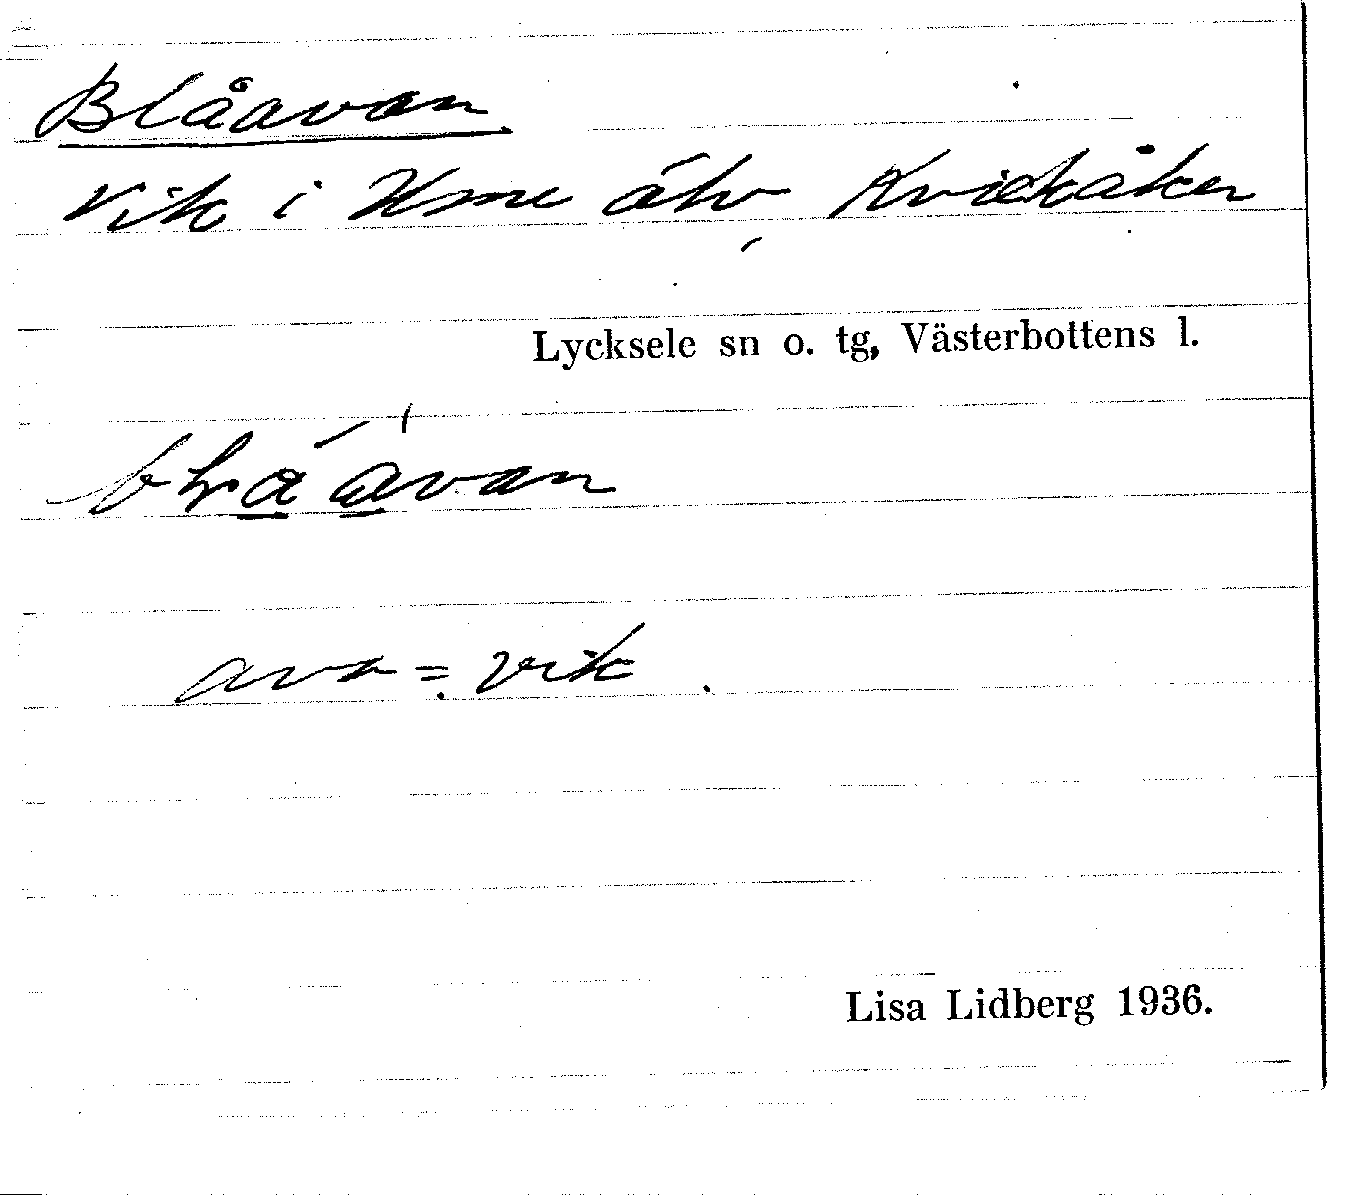 Blåavan
Vik i Ume älv Kvickåker
Lycksele sn o. tg, Västerbottens l.
ava = vik
Lisa Lidberg 1936.